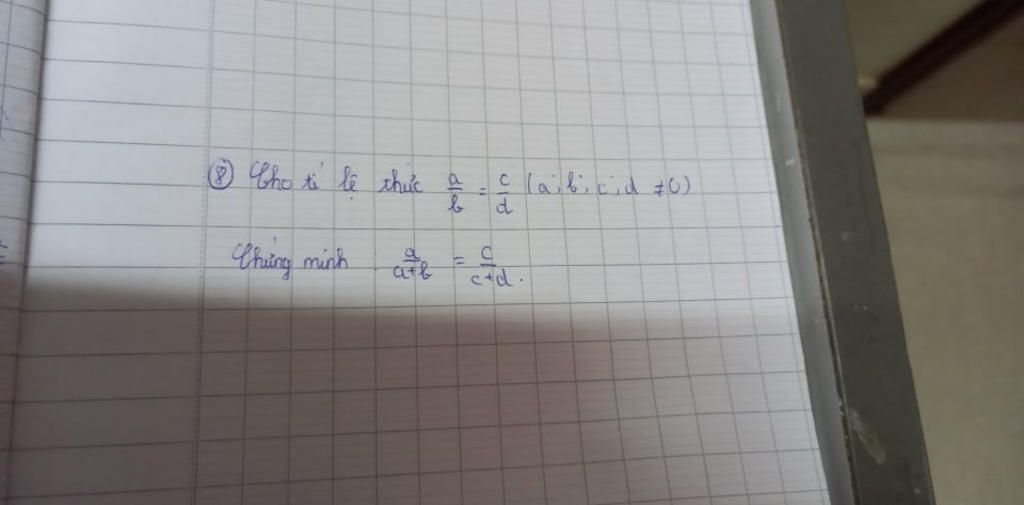 ⑧ Cho tỉ lệ thức a/b = c/d (a; b; c; d ≠ 0)
Chứng minh a/a+b = c/c+d.